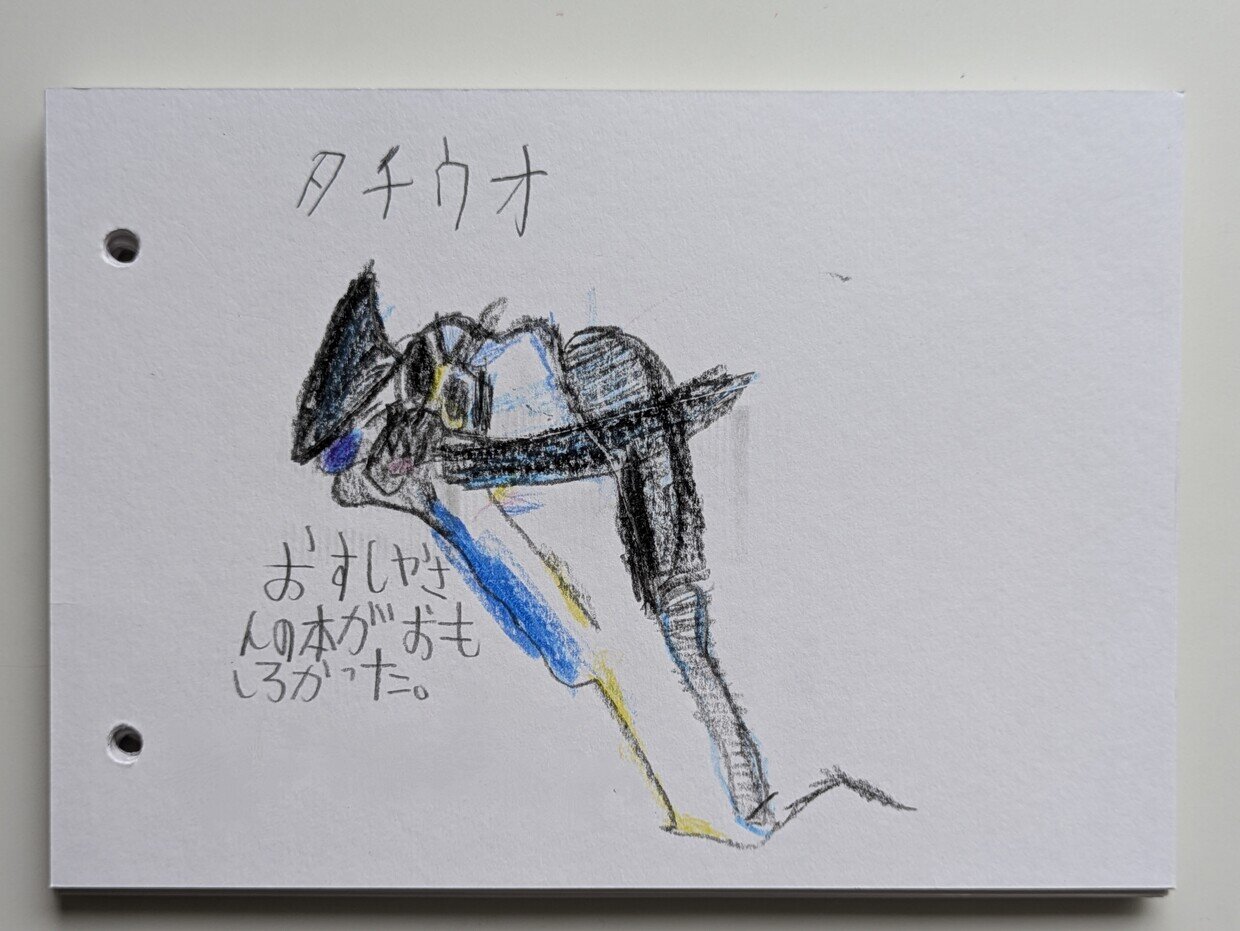 タチウオ
おすしやさ
んの本がおも
しろかった。